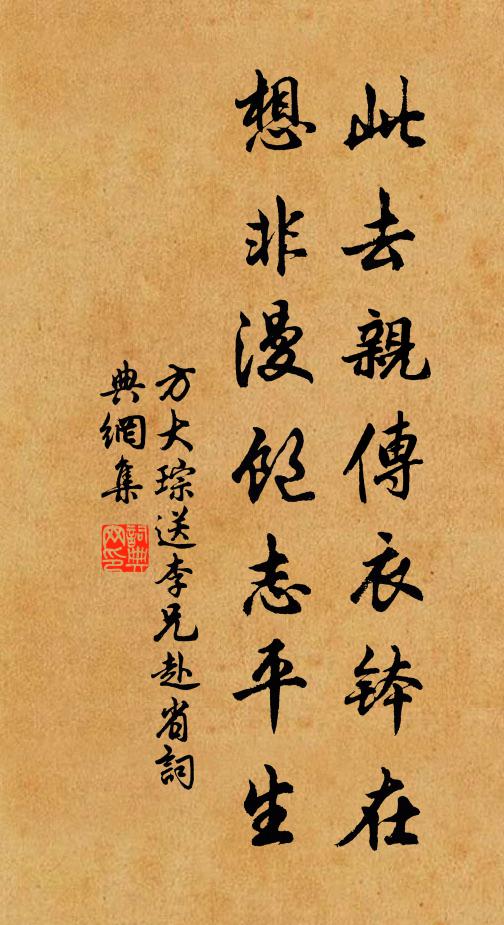 此去親傳衣鉢在
想非漫飽志平生
方大琮送李兄赴省詞
典網集
詞典
网印